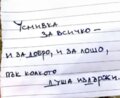 Усмивка
за всичко –
и за добро, и за лошо,
пък колкото
душа издържи.